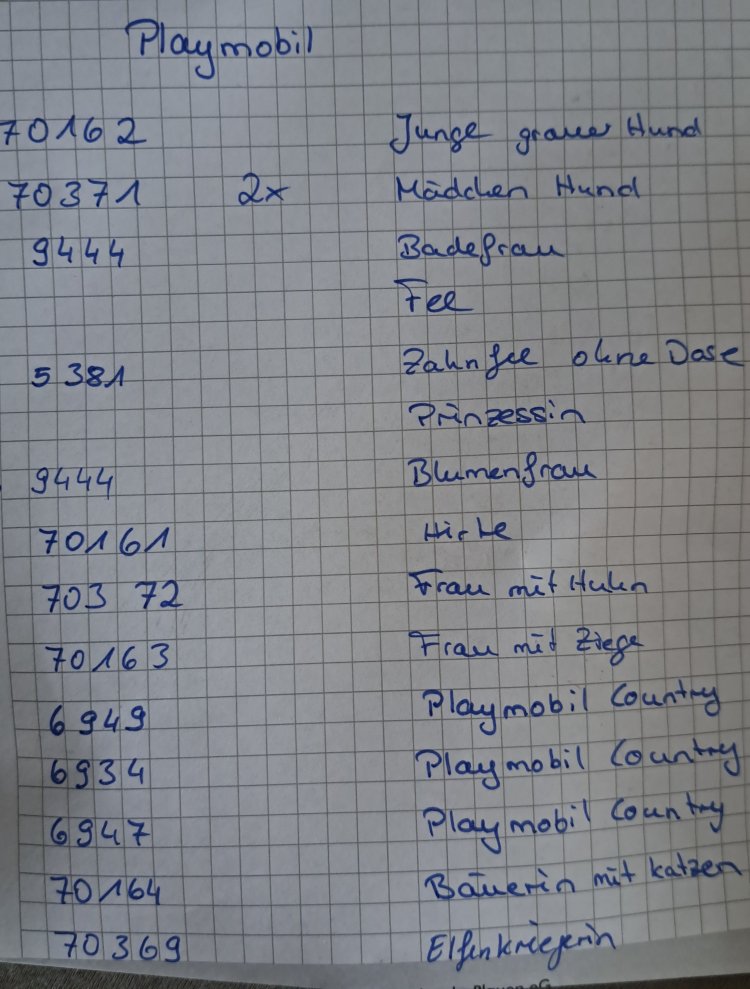 Playmobil
70162 Junge grauer Hund
70371 2x Mädchen Hund
9444 Badefrau
Fee
5381 Zahnfee ohne Dose
Prinzessin
9444 Blumenfrau
70161 Hirte
70372 Frau mit Huhn
70163 Frau mit Ziege
6949 Playmobil Country
6934 Playmobil Country
6947 Playmobil Country
70164 Bäuerin mit Katzen
70369 Elfenkriegerin